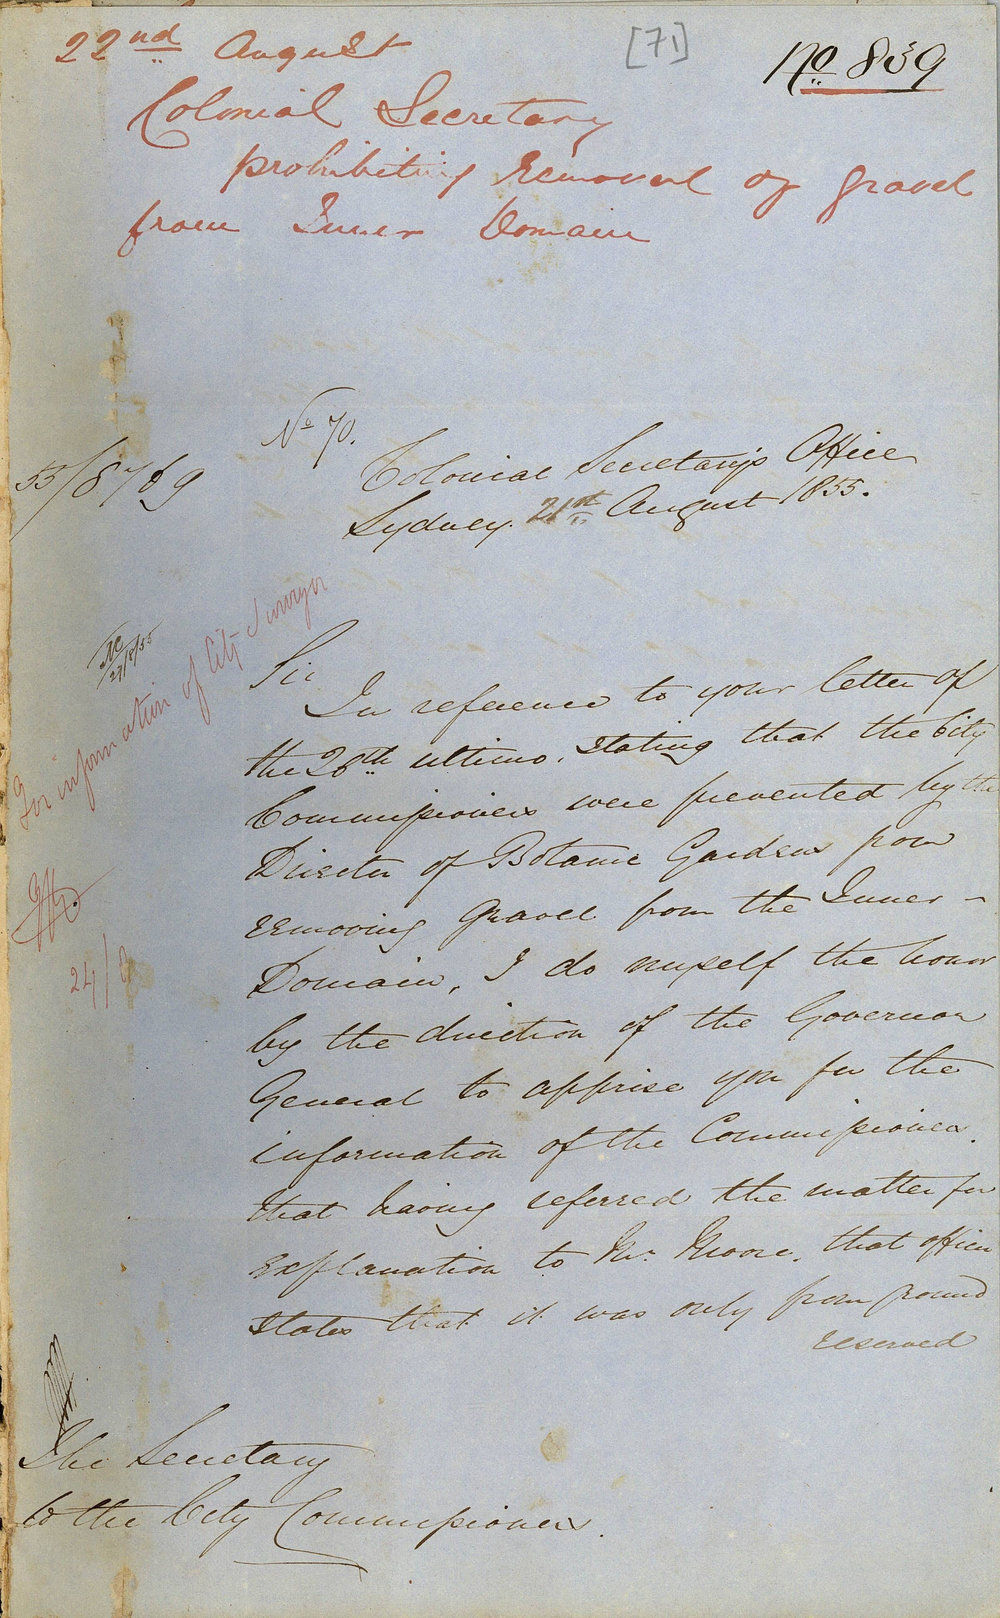 [71]
No 839
22nd August
Colonial Secretary
prohibiting removal of gravel
from Inner Domain
No 70.
55/8769
Colonial Secretary's Office
Sydney. 21st August 1855.
For information of City Surveyor
27/8/55
24/8
Sir
In reference to your letter of
the 26th ultimo, stating that the City
Commissioners were prevented by the
Director of Botanic Gardens from
removing gravel from the Inner
Domain, I do myself the honor
by the direction of the Governor
General to apprise you for the
information of the Commissioners.
that having referred the matter for
explanation to Mr. Moore, that officer
states that it was only from ground
reserved
The Secretary
to the City Commissioners.